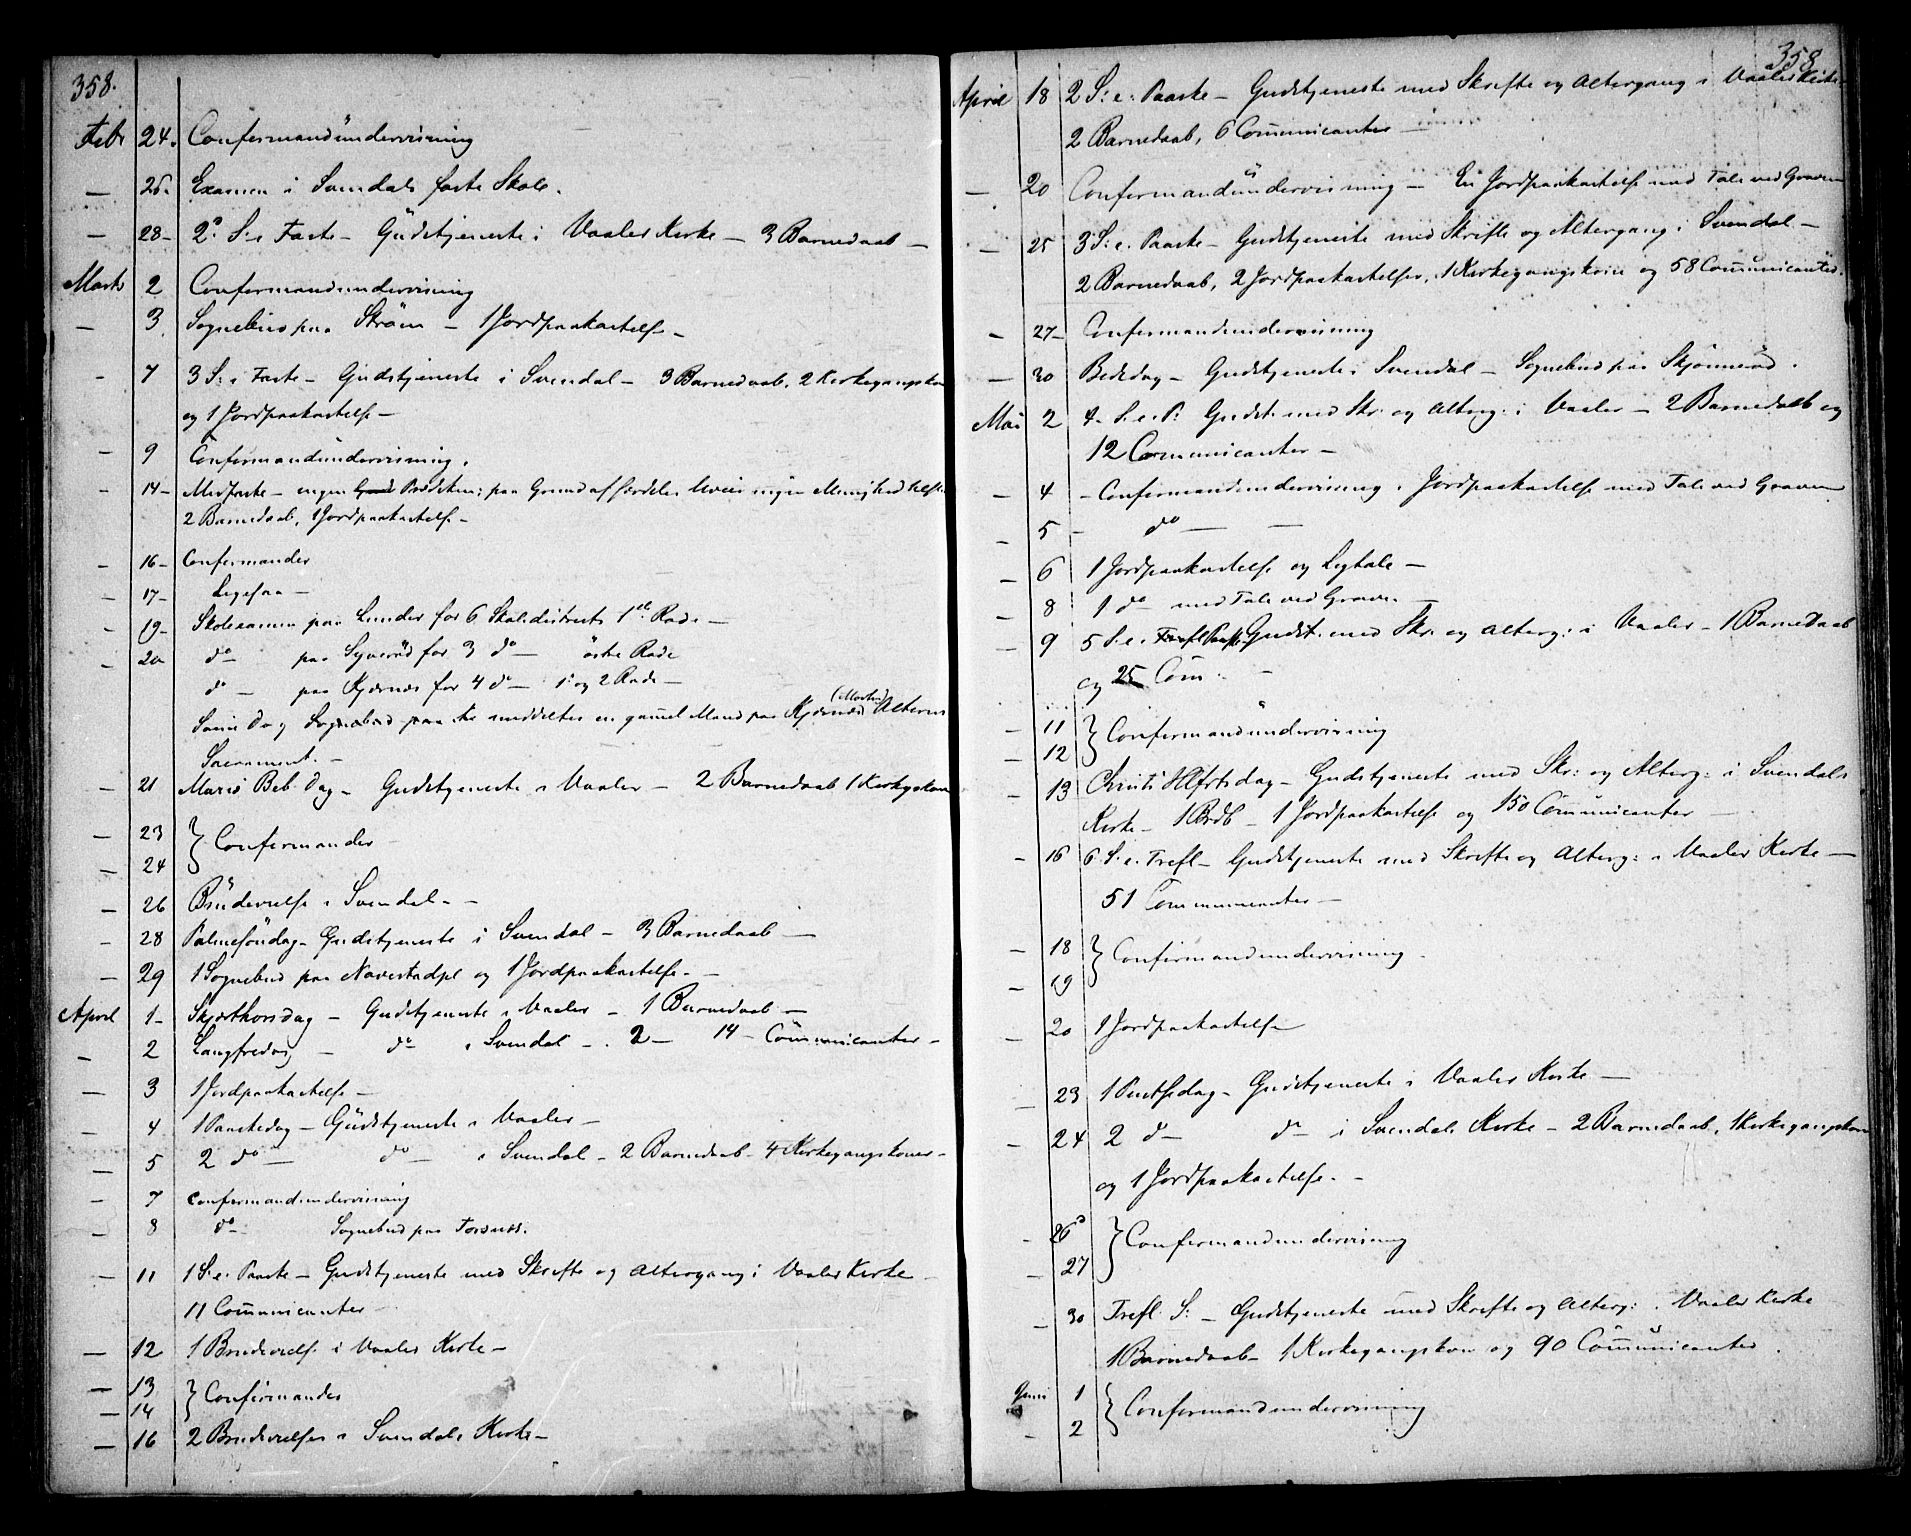 358.
Feb 24. Confermandündervisning
— 25. Examen i Svendals faste Skole.
— 28 – 2. S. i Faste – Gudstjeneste i Vaaler Kirke – 3 Barnedaab –
Marts 2 Confermandundervisning
— 3 Sognebud paa Strøm – 1 Jordpaakastelse –
- 7 3 S: i Faste – Gudstjeneste i Svendal – 3 Barnedaab, 2 Kirkegangskoner
og 1 Jordpaakastelse –
- 9 Confermandundervisning.
- 14 – Midfaste – ingen Prædiken; paa Grund af
2 Barnedaab, 1 Jordpaakastelse –
- 16 – Confermander
- 17 – Ligesaa –
- 19 – Skolexamen paa Lunder for 6 Skoledistricts 1ste Rode –
- 20 do – paa Syverød for 3 do – østre Rode
do – paa Kjærnæs for 4 do – 1 og 2 Rode –
Samme Dag Sognebud meddeltes en gammel Mand paa Kjærnæs (Morten) Alterens
Sacrament. –
— 21 Mariæ Beb. Dag – Gudstjeneste i Vaaler – 2 Barnedaab 1 Kirkegkone
— 23 } Confermander –
— 24
— 26 Brudevielse i Svendal. –
— 28 Palmesöndag – Gudstjeneste i Svendal – 3 Barnedaab –
— 29 1 Sognebud paa Navestadpl og 1 Jordpaakastelse. –
April 1 – Skjærthorsdag – Gudstjeneste i Vaaler – 1 Barnedaab –
— 2 Langfredag – do i Svendal – . 2 – 14 – Communicanter –
— 3 1 Jordpaakastelse –
— 4 1 Paaskedag – Gudstjeneste i Vaaler –
— 5 2 do – do – i Svendal – 2 Barnedaab – 4 Kirkegangskoner –
— 7 Confermandundervisning
— 8 do – Sognebud paa Torsnæs.
— 11 1 S. e. Paaske – Gudstjeneste med Skrifte og Altergang i Vaaler Kirke –
11 Communicanter –
— 12 1 Brudevielse i Vaaler Kirke –
— 13 } Confirmander
— 14
— 16 2 Brudevielser i Svendals Kirke –
358
April 18 2 S: e. Paaske – Gudstjeneste med Skrifte og Altergang i Vaaler Kirke –
2 Barnedaab, 6 Communicanter –
— 20 Confermandündervisning – En Jordpaakastelse med Tale ved Graven
— 25 3 S: e. Paaske – Gudstjeneste med Skrifte og Altergang i Svendal –
2 Barnedaab, 2 Jordpaakastelser, 1 Kirkegangskone og 58 Communicanter.
— 27 – Confermandundervisning
— 30 Bededag – Gudstjeneste i Svendal – Sognebud paa Skjønnerød.
Mai 2 4. S. e. P: Gudst. med Skr. og Alterg: i Vaaler – 2 Barnedaab og
12 Communicanter –
— 4 – Confermandundervisning, Jordpaakastelse med Tale ved Graven
— 5 – do – –
— 6 1 Jordpaakastelse og Ligtale –
— 8 1 do med Tale ved Graven –
— 9 5 S. e. Trefl Paaske Gudst. med Skr: og Alterg: i Vaaler – 1 Barnedaab
og 25 Com. –
— 11 } Confermandündervisning
— 12
— 13 Christi Hlfrtsdag – Gudstjeneste med Skr: og Alterg: i Svendals
Kirke – 1 Brdb – 1 Jordpaakastelse og 150 Communicanter –
— 16 6 S. e. Trefl – Gudstjeneste med Skrifte og Alterg: i Vaaler Kirke –
51 Communicanter –
— 18 } Confermandundervisning.
— 19
— 20 1 Jordpaakastelse
— 23 1 Pintsedag – Gudstjeneste i Vaaler Kirke –
— 24 2 do – do – i Svendals Kirke – 2 Barnedaab, 1 Kirkegangskone
og 1 Jordpaakastelse. –
— 26 } Confermandundervisning
— 27
— 30 Trefl. S: – Gudstjeneste med Skrifte og Alterg: i Vaaler Kirke
1 Barnedaab – 1 Kirkegangskone og 90 Communicanter.
Juni 1 } Confermandundervisning
- 2